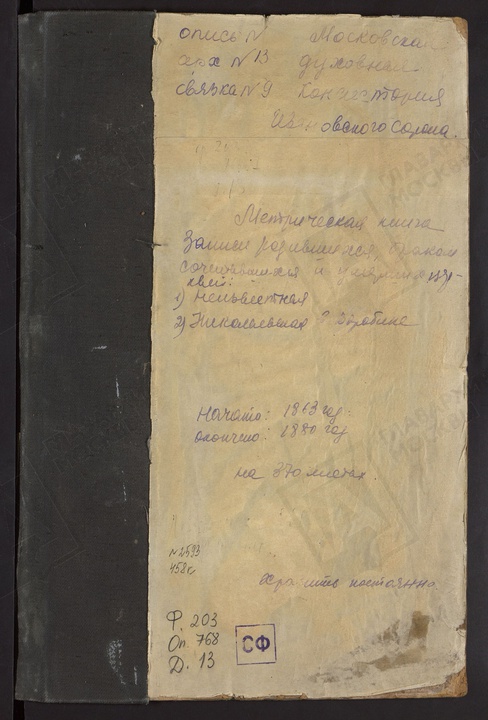 опись N Московская
арх N 13 духовная
связка N 9 консистория
Ивановского сорока.
Метрическая книга
Записи родившихся, браком
сочетавшихся и умерших цер-
квей:
1) Неизвестная
2) Николаевская
Начато: 1863 год.
окончено: 1880 год
на 370 листах.
N 2593
458с
Хранить постоянно
Ф. 203
Оп. 768
Д. 13
СФ